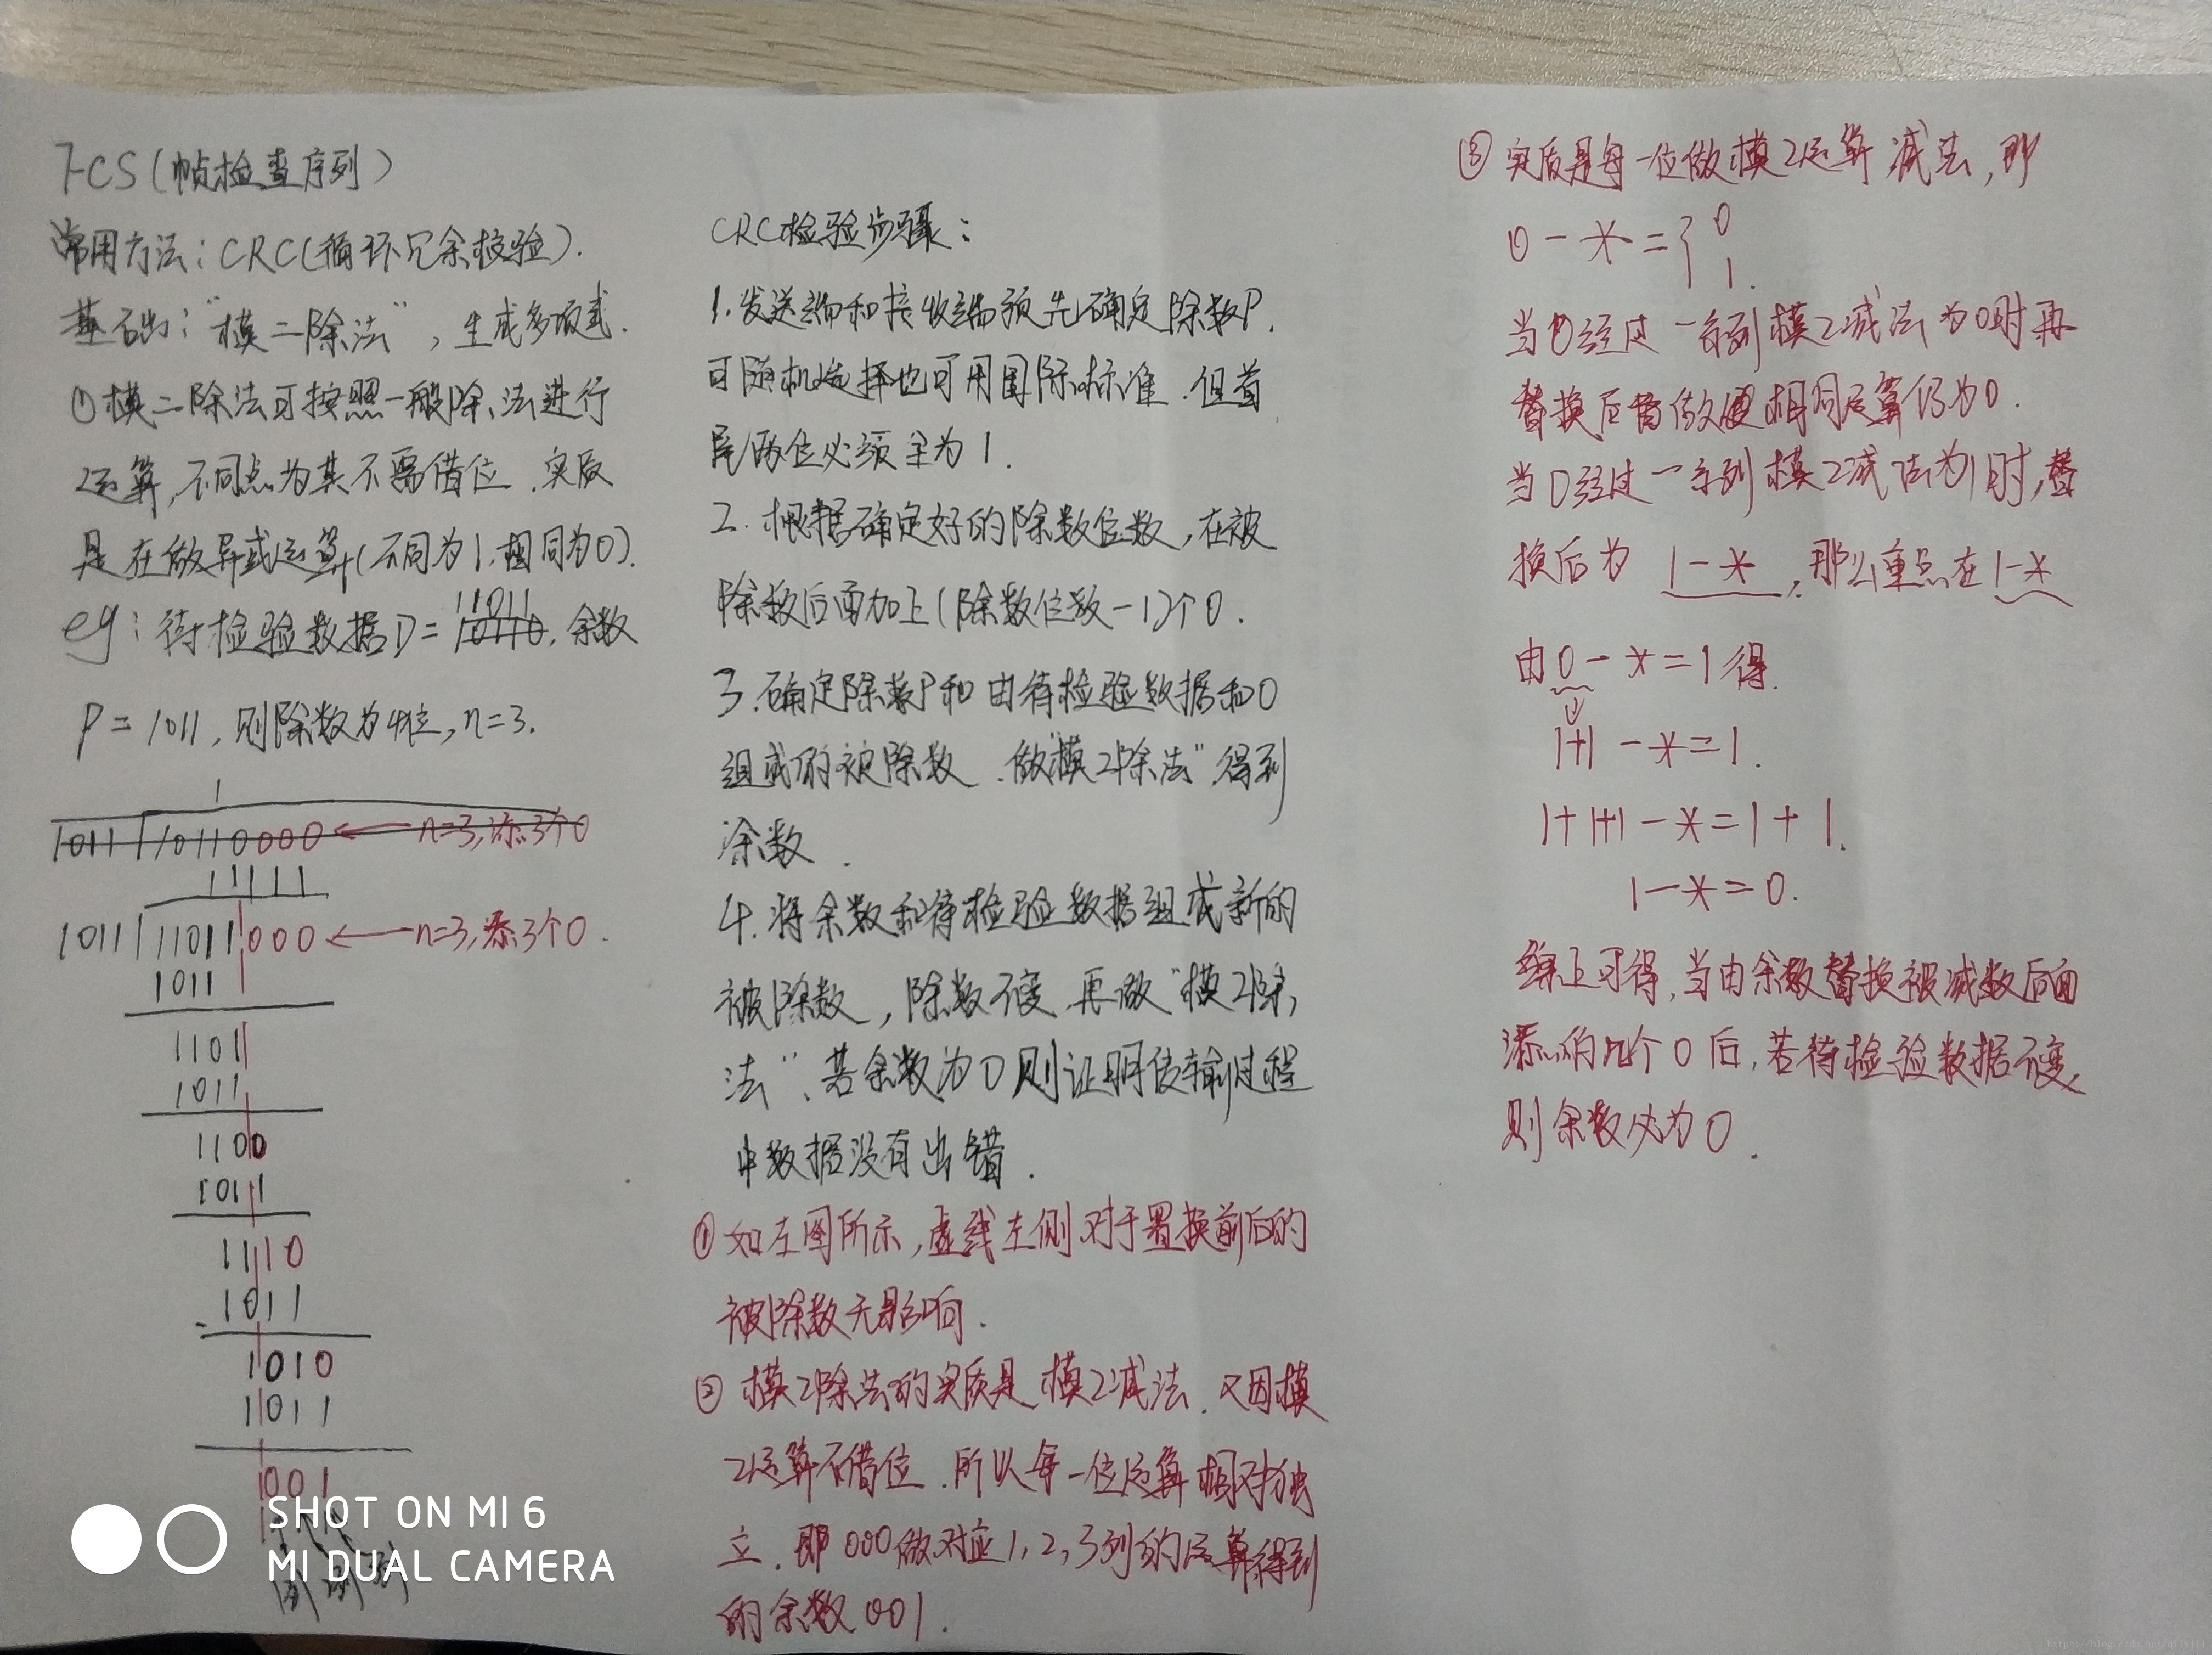 FCS(帧检查序列)
常用方法:CRC(循环冗余校验).
基础:"模二除法",生成多项式.
①模二除法可按照一般除法进行
运算,不同点为其不需借位.实质
是在做异或运算(不同为1,相同为0).
11011
eg:待检验数据D=10110.余数
P=1011,则除数为4位,n=3.
1
1011 10110000 ← n=3,添3个0
11111
1011 11011000 ← n=3,添3个0.
1011
1101
1011
1100
1011
1110
1011
1010
1011
001
CRC检验步骤:
1.发送端和接收端预先确定除数P.
可随机选择也可用国际标准.但首
尾两位必须全为1.
2.根据确定好的除数位数,在被
除数后面加上(除数位数-1)个0.
3.确定除数P和由待检验数据和0
组成的被除数.做"模2除法"得到
余数.
4.将余数和待检验数据组成新的
被除数,除数不变.再做"模2除
法",若余数为0则证明传输过程
中数据没有出错.
①如左图所示,虚线左侧对于置换前后的
被除数无影响.
②模2除法的实质是模2减法.又因模
2运算不借位.所以每一位运算相对独
立.即000做对应1,2,3列的运算得到
的余数001.
③实质是每一位做模2运算减法,即
0-*={0
1.
当0经过一系列模2减法为0时再
替换后做相同运算仍为0.
当0经过一系列模2减法为1时,替
换后为1-*,那么重点在1-*
由0-*=1得.
1+1-*=1.
1+1+1-*=1+1.
1-*=0.
综上可得,当由余数替换被减数后面
添的几个0后,若待检验数据不变,
则余数必为0.
SHOT ON MI 6
MI DUAL CAMERA